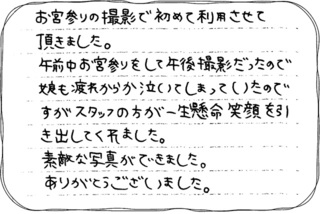 お宮参りの撮影で初めて利用させて
頂きました。
午前中お宮参りをして午後撮影だったので
娘も疲れからか泣いてしまっていたので
すがスタッフの方が一生懸命笑顔を引
き出してくれました。
素敵な写真ができました。
ありがとうございました。